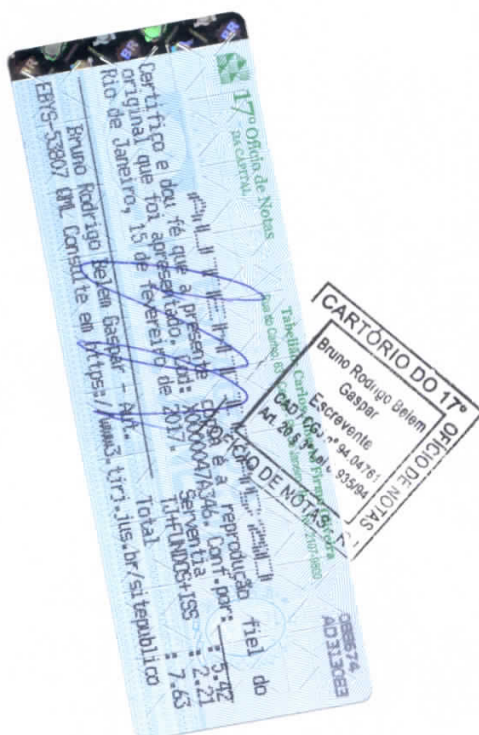 17º Ofício de Notas
DA CAPITAL
Tabelião: Carlos
Rua do Carmo, 63
Certifico e dou fé que a presente cópia é a reprodução fiel do
original que foi apresentado. Cod: X000047A346. Conf.por:
Rio de Janeiro, 15 de fevereiro de 2017. Serventia : 5.42
TJ+FUNDOS+ISS : 2.21
Bruno Rodrigo Belem Gaspar - Aut. Total : 7.63
EBYS-53807 UML Consulte em https://www3.tjrj.jus.br/sitepublico
088674
AD313083
CARTÓRIO DO 17º
OFÍCIO DE NOTAS
Bruno Rodrigo Belem
Gaspar
Escrevente
94.04761
Art. 20 § 3º Lei 8.935/94
OFÍCIO DE NOTAS